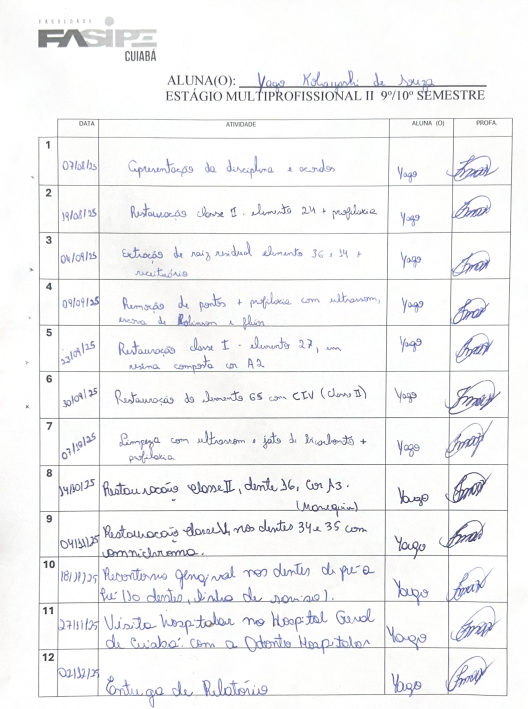 FACULDADE
FASIPE
CUIABÁ
ALUNA(O): Yago Kobayashi de Souza
ESTÁGIO MULTIPROFISSIONAL II 9º/10º SEMESTRE
DATA ATIVIDADE ALUNA (O) PROFA.
1
07/08/25 Apresentação da disciplina e acordos Yago
2
19/08/25 Restauração classe II - elemento 24 + profilaxia Yago
3
04/09/25 Extração de raiz residual elemento 36 e 34 + Yago
receituário
4
09/09/25 Remoção de pontos + profilaxia com ultrassom, Yago
escova de Robinson e flúor
5
23/09/25 Restauração classe I - elemento 27, em Yago
resina composta cor A2
6
30/09/25 Restauração do elemento 65 com CIV (classe II) Yago
7
07/10/25 Limpeza com ultrassom e jato de bicarbonato + Yago
profilaxia
8
14/10/25 Restauração classe II, dente 16, Cor A3. Yago
(Manequim)
9
04/11/25 Restauração classe V, nos dentes 34 e 35 com Yago
omnichroma.
10
18/11/25 Recontorno gengival nos dentes di pré a Yago
pré (10 dentes, linha de sorriso).
11
27/11/25 Visita hospitalar no Hospital Geral Yago
de Cuiabá com a Odonto Hospitalar
12
02/12/25 Entrega de Relatório Yago